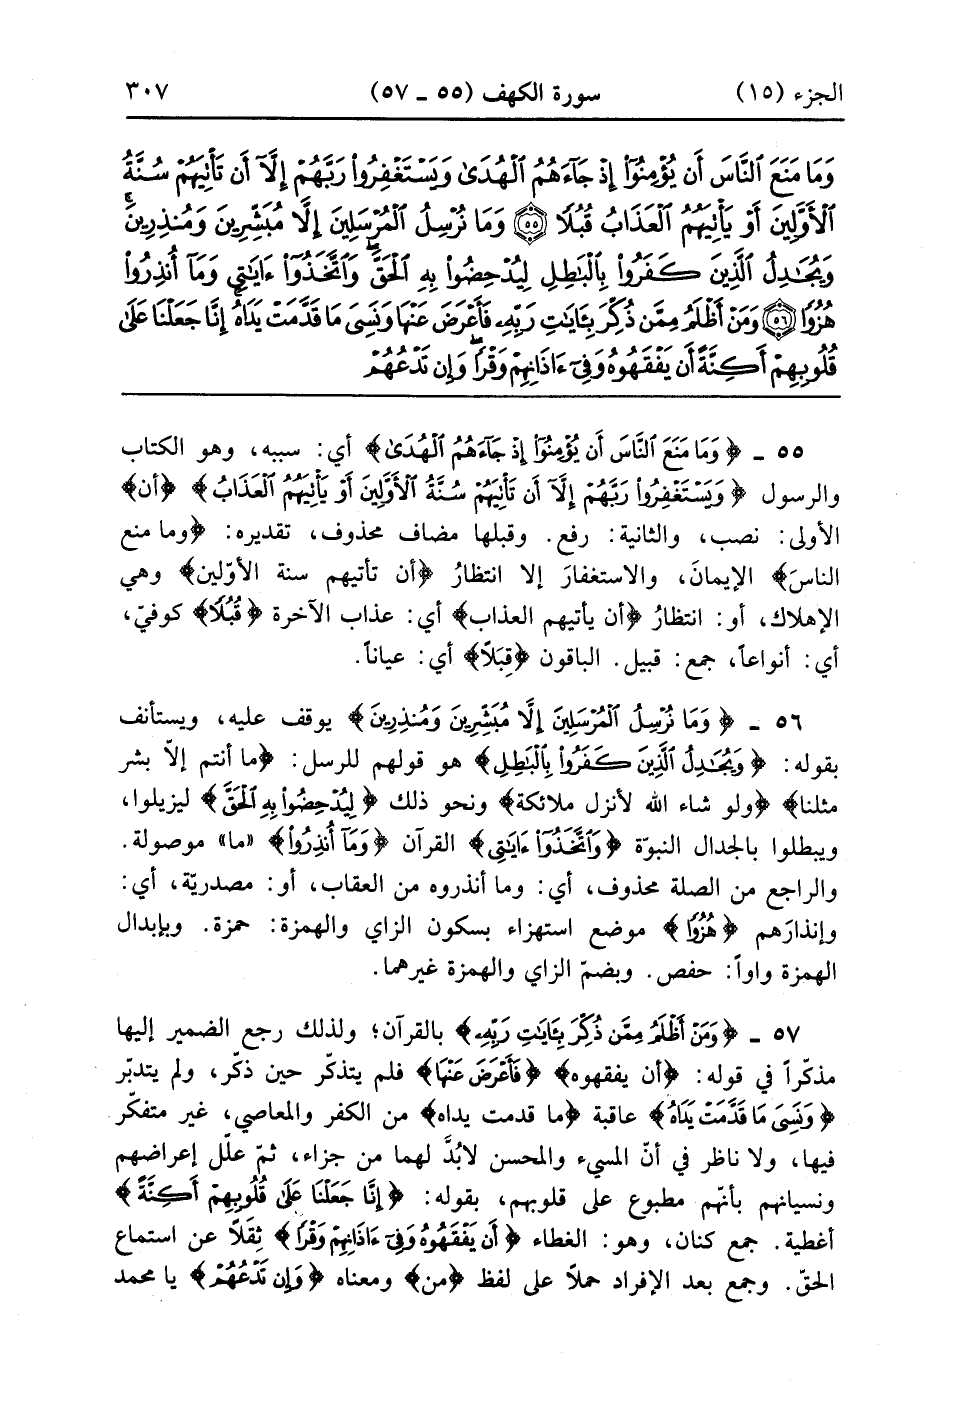 الجزء (١٥) سورة الكهف (٥٥ ـ ٥٧) ٣٠٧
وَمَا مَنَعَ ٱلنَّاسَ أَن يُؤْمِنُوٓا۟ إِذْ جَآءَهُمُ ٱلْهُدَىٰ وَيَسْتَغْفِرُوا۟ رَبَّهُمْ إِلَّآ أَن تَأْتِيَهُمْ سُنَّةُ
ٱلْأَوَّلِينَ أَوْ يَأْتِيَهُمُ ٱلْعَذَابُ قُبُلًا ۝٥٥ وَمَا نُرْسِلُ ٱلْمُرْسَلِينَ إِلَّا مُبَشِّرِينَ وَمُنذِرِينَ ۚ
وَيُجَٰدِلُ ٱلَّذِينَ كَفَرُوا۟ بِٱلْبَٰطِلِ لِيُدْحِضُوا۟ بِهِ ٱلْحَقَّ ۖ وَٱتَّخَذُوٓا۟ ءَايَٰتِى وَمَآ أُنذِرُوا۟
هُزُوًا ۝٥٦ وَمَنْ أَظْلَمُ مِمَّن ذُكِّرَ بِـَٔايَٰتِ رَبِّهِۦ فَأَعْرَضَ عَنْهَا وَنَسِىَ مَا قَدَّمَتْ يَدَاهُ ۚ إِنَّا جَعَلْنَا عَلَىٰ
قُلُوبِهِمْ أَكِنَّةً أَن يَفْقَهُوهُ وَفِىٓ ءَاذَانِهِمْ وَقْرًا ۖ وَإِن تَدْعُهُمْ
٥٥ ـ ﴿وَمَا مَنَعَ ٱلنَّاسَ أَن يُؤْمِنُوٓا۟ إِذْ جَآءَهُمُ ٱلْهُدَىٰ﴾ أي: سببه، وهو الكتاب
والرسول ﴿وَيَسْتَغْفِرُوا۟ رَبَّهُمْ إِلَّآ أَن تَأْتِيَهُمْ سُنَّةُ ٱلْأَوَّلِينَ أَوْ يَأْتِيَهُمُ ٱلْعَذَابُ﴾ ﴿أن﴾
الأولى: نصب، والثانية: رفع. وقبلها مضاف محذوف، تقديره: ﴿وما منع
الناسَ﴾ الإيمانَ، والاستغفارَ إلا انتظارُ ﴿أن تأتيهم سنة الأوّلين﴾ وهي
الإهلاك، أو: انتظارُ ﴿أن يأتيهم العذاب﴾ أي: عذاب الآخرة ﴿قُبُلًا﴾ كوفيّ،
أي: أنواعاً، جمع: قبيل. الباقون ﴿قِبَلاً﴾ أي: عياناً.
٥٦ ـ ﴿وَمَا نُرْسِلُ ٱلْمُرْسَلِينَ إِلَّا مُبَشِّرِينَ وَمُنذِرِينَ﴾ يوقف عليه، ويستأنف
بقوله: ﴿وَيُجَٰدِلُ ٱلَّذِينَ كَفَرُوا۟ بِٱلْبَٰطِلِ﴾ هو قولهم للرسل: ﴿ما أنتم إلاّ بشر
مثلنا﴾ ﴿ولو شاء الله لأنزل ملائكة﴾ ونحو ذلك ﴿لِيُدْحِضُوا۟ بِهِ ٱلْحَقَّ﴾ ليزيلوا،
ويبطلوا بالجدال النبوّة ﴿وَٱتَّخَذُوٓا۟ ءَايَٰتِى﴾ القرآن ﴿وَمَآ أُنذِرُوا۟﴾ «ما» موصولة.
والراجع من الصلة محذوف، أي: وما أنذروه من العقاب، أو: مصدريّة، أي:
وإنذارَهم ﴿هُزُوًا﴾ موضع استهزاء بسكون الزاي والهمزة: حمزة. وبإبدال
الهمزة واواً: حفص. وبضمّ الزاي والهمزة غيرهما.
٥٧ ـ ﴿وَمَنْ أَظْلَمُ مِمَّن ذُكِّرَ بِـَٔايَٰتِ رَبِّهِۦ﴾ بالقرآن؛ ولذلك رجع الضمير إليها
مذكّراً في قوله: ﴿أن يفقهوه﴾ ﴿فَأَعْرَضَ عَنْهَا﴾ فلم يتذكّر حين ذكّر، ولم يتدبّر
﴿وَنَسِىَ مَا قَدَّمَتْ يَدَاهُ﴾ عاقبة ﴿ما قدمت يداه﴾ من الكفر والمعاصي، غير متفكّر
فيها، ولا ناظر في أنّ المسيء والمحسن لابُدَّ لهما من جزاء، ثمّ علّل إعراضهم
ونسيانهم بأنّهم مطبوع على قلوبهم، بقوله: ﴿إِنَّا جَعَلْنَا عَلَىٰ قُلُوبِهِمْ أَكِنَّةً﴾
أغطية. جمع كنان، وهو: الغطاء ﴿أَن يَفْقَهُوهُ وَفِىٓ ءَاذَانِهِمْ وَقْرًا﴾ ثِقَلاً عن استماع
الحقّ. وجمع بعد الإفراد حملاً على لفظ ﴿من﴾ ومعناه ﴿وَإِن تَدْعُهُمْ﴾ يا محمد